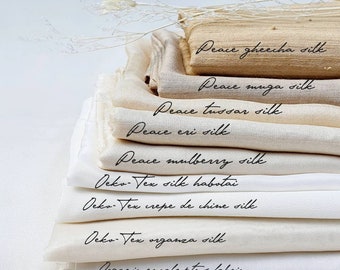 Peace gheecha silk
Peace muga silk
Peace tussar silk
Peace eri silk
Peace mulberry silk
Oeko-Tex silk habotai
Oeko-Tex crepe de chine silk
Oeko-Tex organza silk